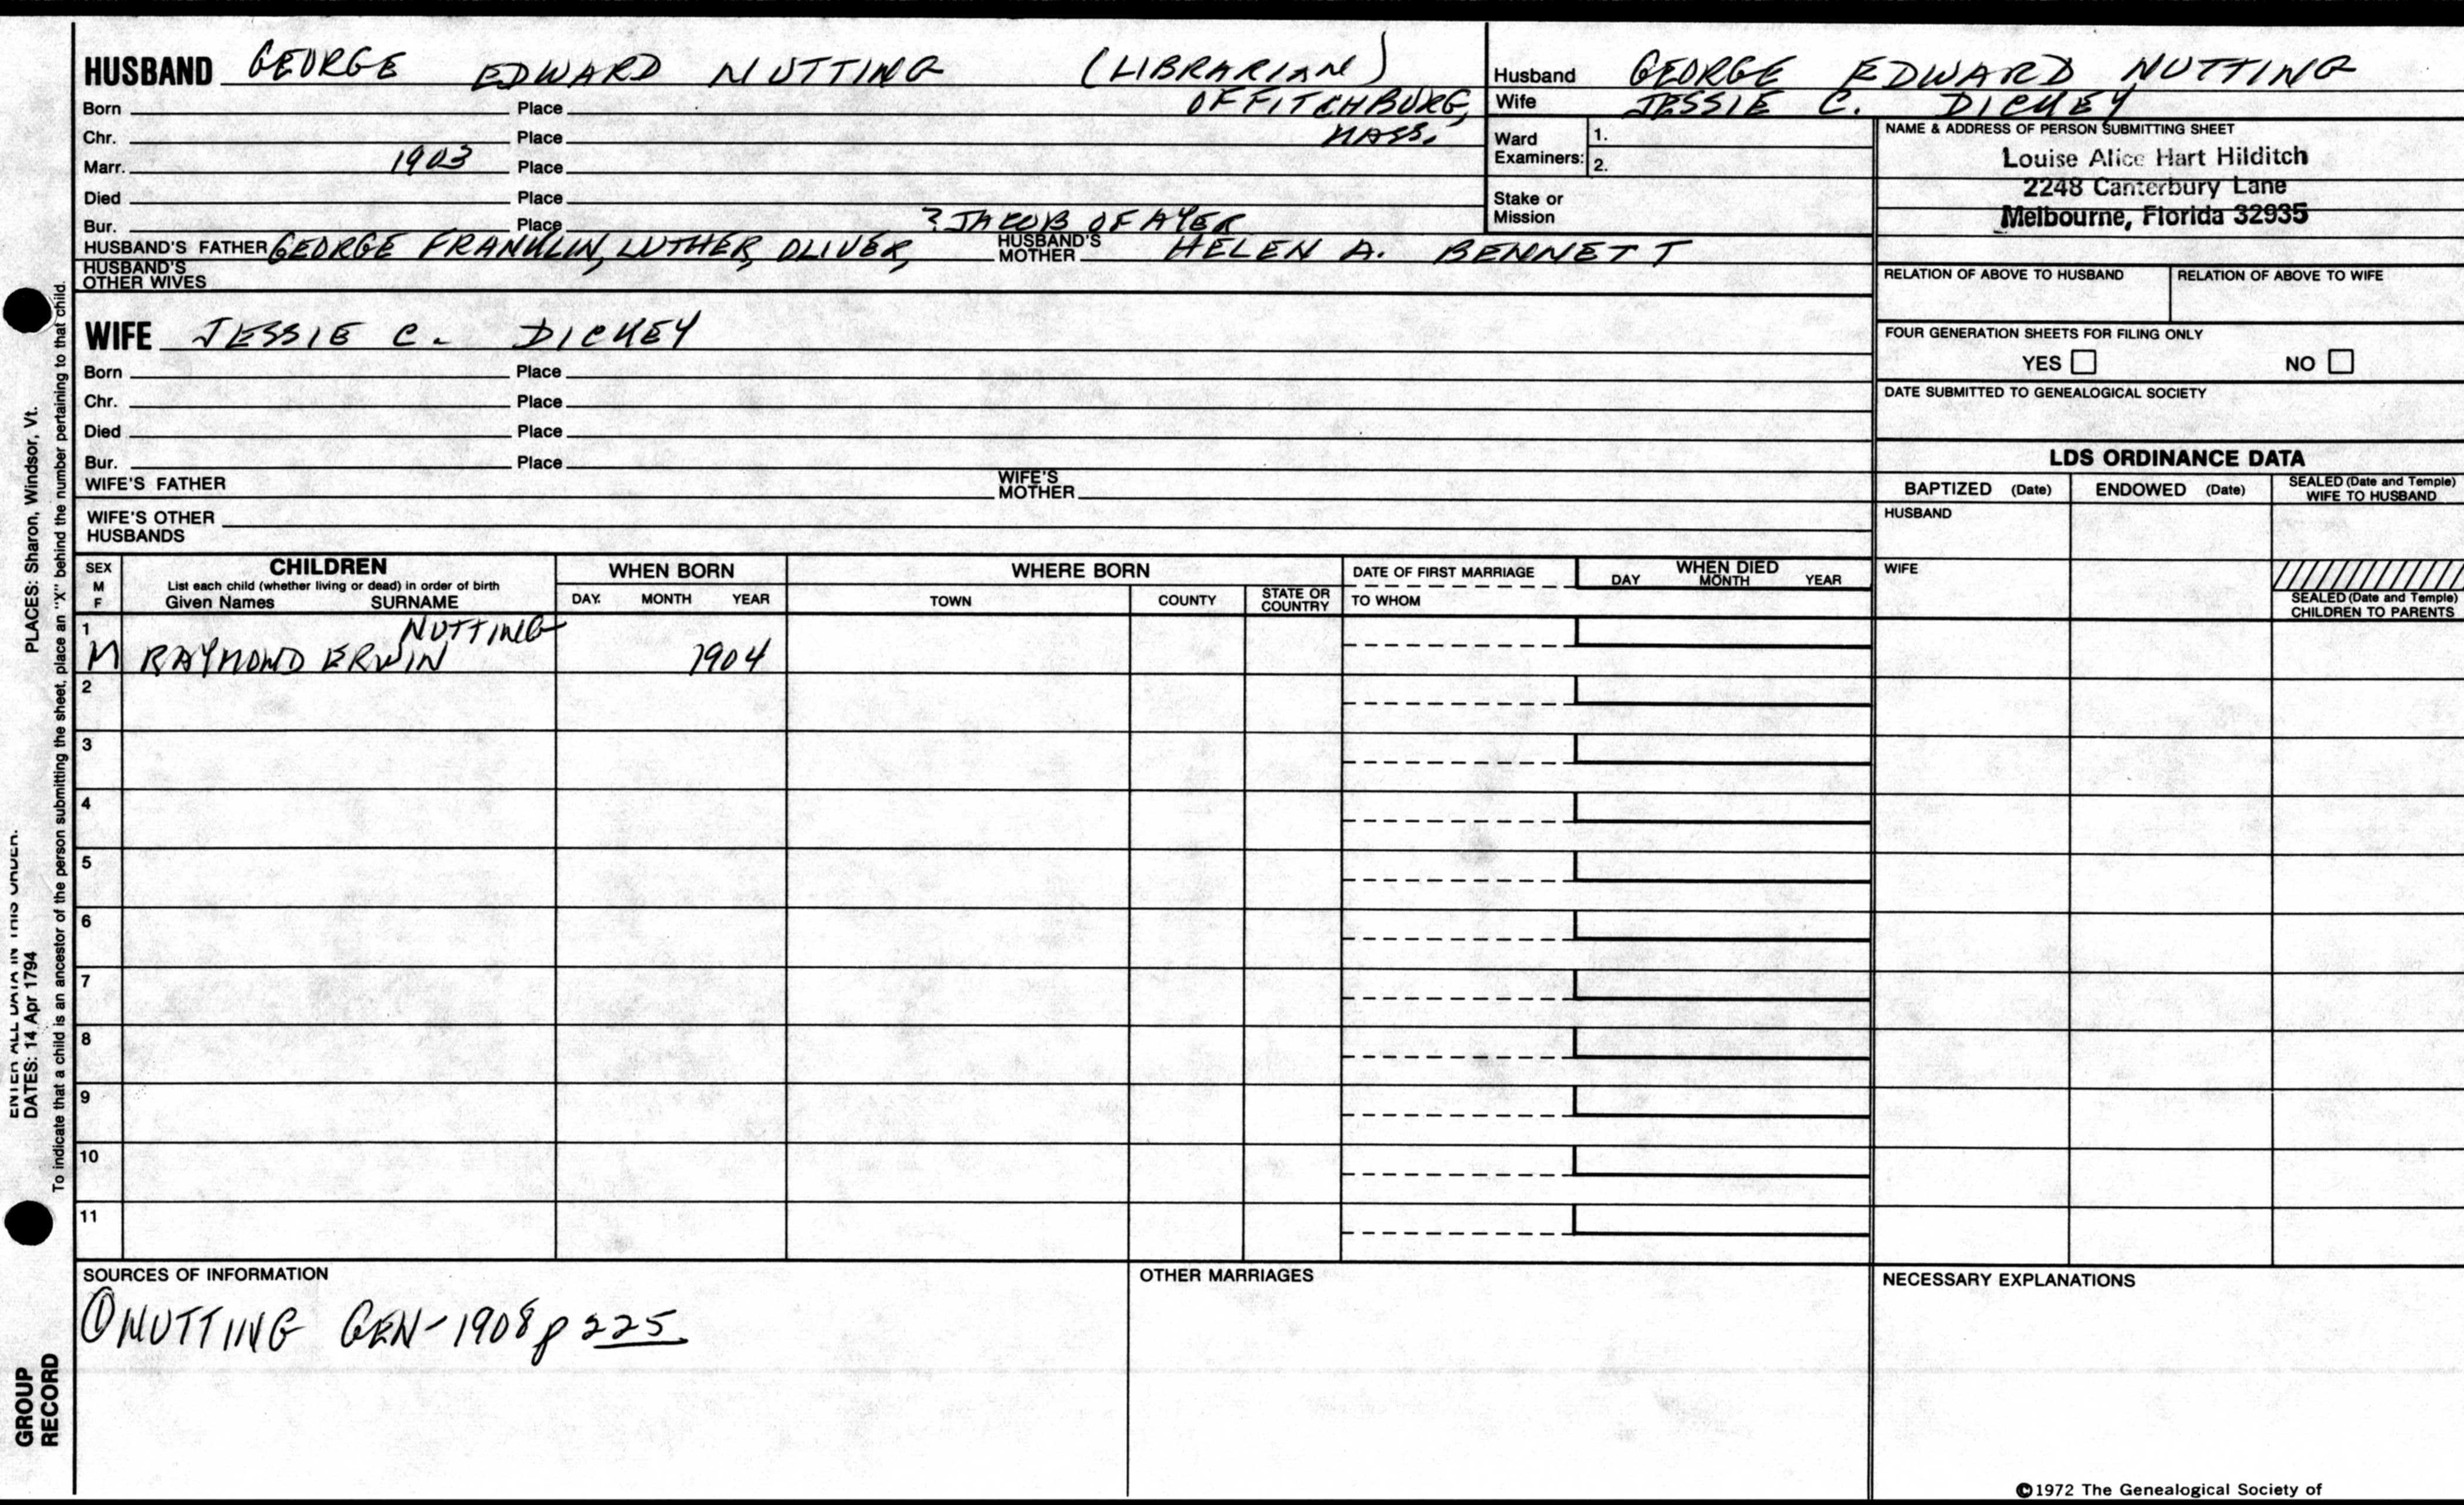 HUSBAND GEORGE EDWARD NUTTING (LIBRARIAN)
Born Place OF FITCHBURG,
Chr. Place MASS.
Marr. 1903 Place
Died Place
Bur. Place ? JACOB OF AYER
HUSBAND'S FATHER GEORGE FRANKLIN, LUTHER, OLIVER, HUSBAND'S MOTHER HELEN A. BENNETT
HUSBAND'S OTHER WIVES
WIFE JESSIE C. DICKEY
Born Place
Chr. Place
Died Place
Bur. Place
WIFE'S FATHER WIFE'S MOTHER
WIFE'S OTHER HUSBANDS
Husband GEORGE EDWARD NUTTING
Wife JESSIE C. DICKEY
Ward Examiners: 1.
2.
Stake or Mission
NAME & ADDRESS OF PERSON SUBMITTING SHEET
Louise Alice Hart Hilditch
2248 Canterbury Lane
Melbourne, Florida 32935
RELATION OF ABOVE TO HUSBAND RELATION OF ABOVE TO WIFE
FOUR GENERATION SHEETS FOR FILING ONLY
YES NO
DATE SUBMITTED TO GENEALOGICAL SOCIETY
LDS ORDINANCE DATA
BAPTIZED (Date) ENDOWED (Date) SEALED (Date and Temple) WIFE TO HUSBAND
HUSBAND
WIFE
SEALED (Date and Temple) CHILDREN TO PARENTS
SEX M F
CHILDREN
List each child (whether living or dead) in order of birth
Given Names SURNAME
WHEN BORN
DAY. MONTH YEAR
WHERE BORN
TOWN COUNTY STATE OR COUNTRY
DATE OF FIRST MARRIAGE
TO WHOM
WHEN DIED
DAY MONTH YEAR
1 NUTTING
M RAYMOND ERWIN 1904
2
3
4
5
6
7
8
9
10
11
SOURCES OF INFORMATION
① NUTTIING GEN-1908 p 225
OTHER MARRIAGES
NECESSARY EXPLANATIONS
©1972 The Genealogical Society of
ENTER ALL DATA IN THIS ORDER.
DATES: 14 Apr 1794 PLACES: Sharon, Windsor, Vt.
To indicate that a child is an ancestor of the person submitting the sheet, place an "X" behind the number pertaining to that child.
GROUP
RECORD